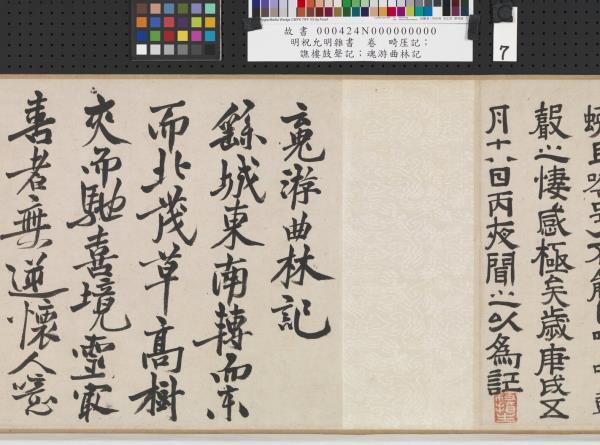 故書 000424N000000000
明祝允明雜書 卷 畸厓記；
譙樓鼓聲記；魂游曲林記
7
之悽感極矣歲庚戌五
月十八日丙夜聞之以為記
魂游曲林記
繇城東南轉而東
而北茂草高樹
夾而馳喜境靈寂
者無逆懷人